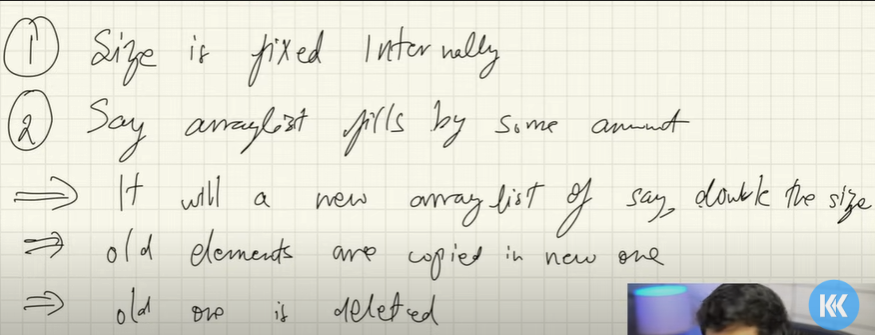 1 Size is fixed Internally
2 Say arraylist fills by some amount
⇒ It will a new array list of say, double the size
⇒ old elements are copied in new one
⇒ old one is deleted
KK